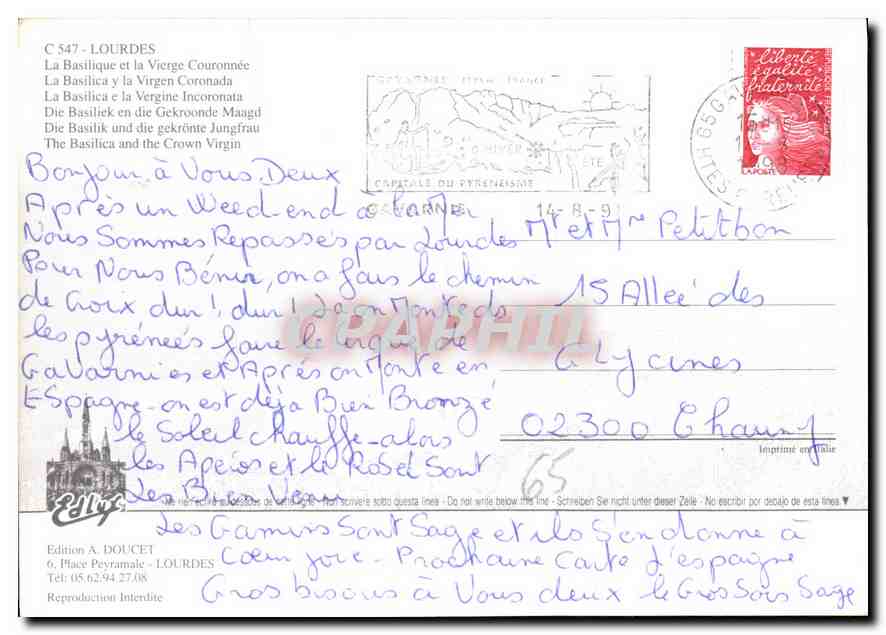 C 547 - LOURDES
La Basilique et la Vierge Couronnée
La Basilica y la Virgen Coronada
La Basilica e la Vergine Incoronata
Die Basiliek en die Gekroonde Maagd
Die Basilik und die gekrönte Jungfrau
The Basilica and the Crown Virgin
GAVARNIE FRANCE
HIVER
ÉTÉ
CAPITALE DU PYRENEISME
GAVARNIE 14-8-9
liberté
égalité
fraternité
RÉPUBLIQUE FRANÇAISE
LA POSTE
Bonjour à Vous Deux
Après un Weed-end à la Mer
Nous Sommes Repassés par Lourdes
Pour Nous Bénir, on a fais le chemin
de Croix dur!, dur! La on Monte ds
les pyrénéés faire le Cirque de
Gavarnies et Après on Monte en
Espagne - on est déja Bien Bronzé
le Soleil chauffe - alors
les Apéros et le Rosé Sont
les Bien Venu
Les Gamins Sont Sage et ils S'en donne à
Cœur joie - Prochaine Carte d'espagne
Gros bisous à Vous deux le Gros Sois Sage
Mr et Mme Petitbon
15 Alleé des
Glycines
02300 Chauny
65
CPAPHIL
Imprimé en Italie
Ne rien écrire au-dessous de cette ligne - Non scrivere sotto questa linea - Do not write below this line - Schreiben Sie nicht unter dieser Zeile - No escribir por debajo de esta linea
Edlys
Edition A. DOUCET
6, Place Peyramale - LOURDES
Tél: 05.62.94.27.08
Reproduction Interdite